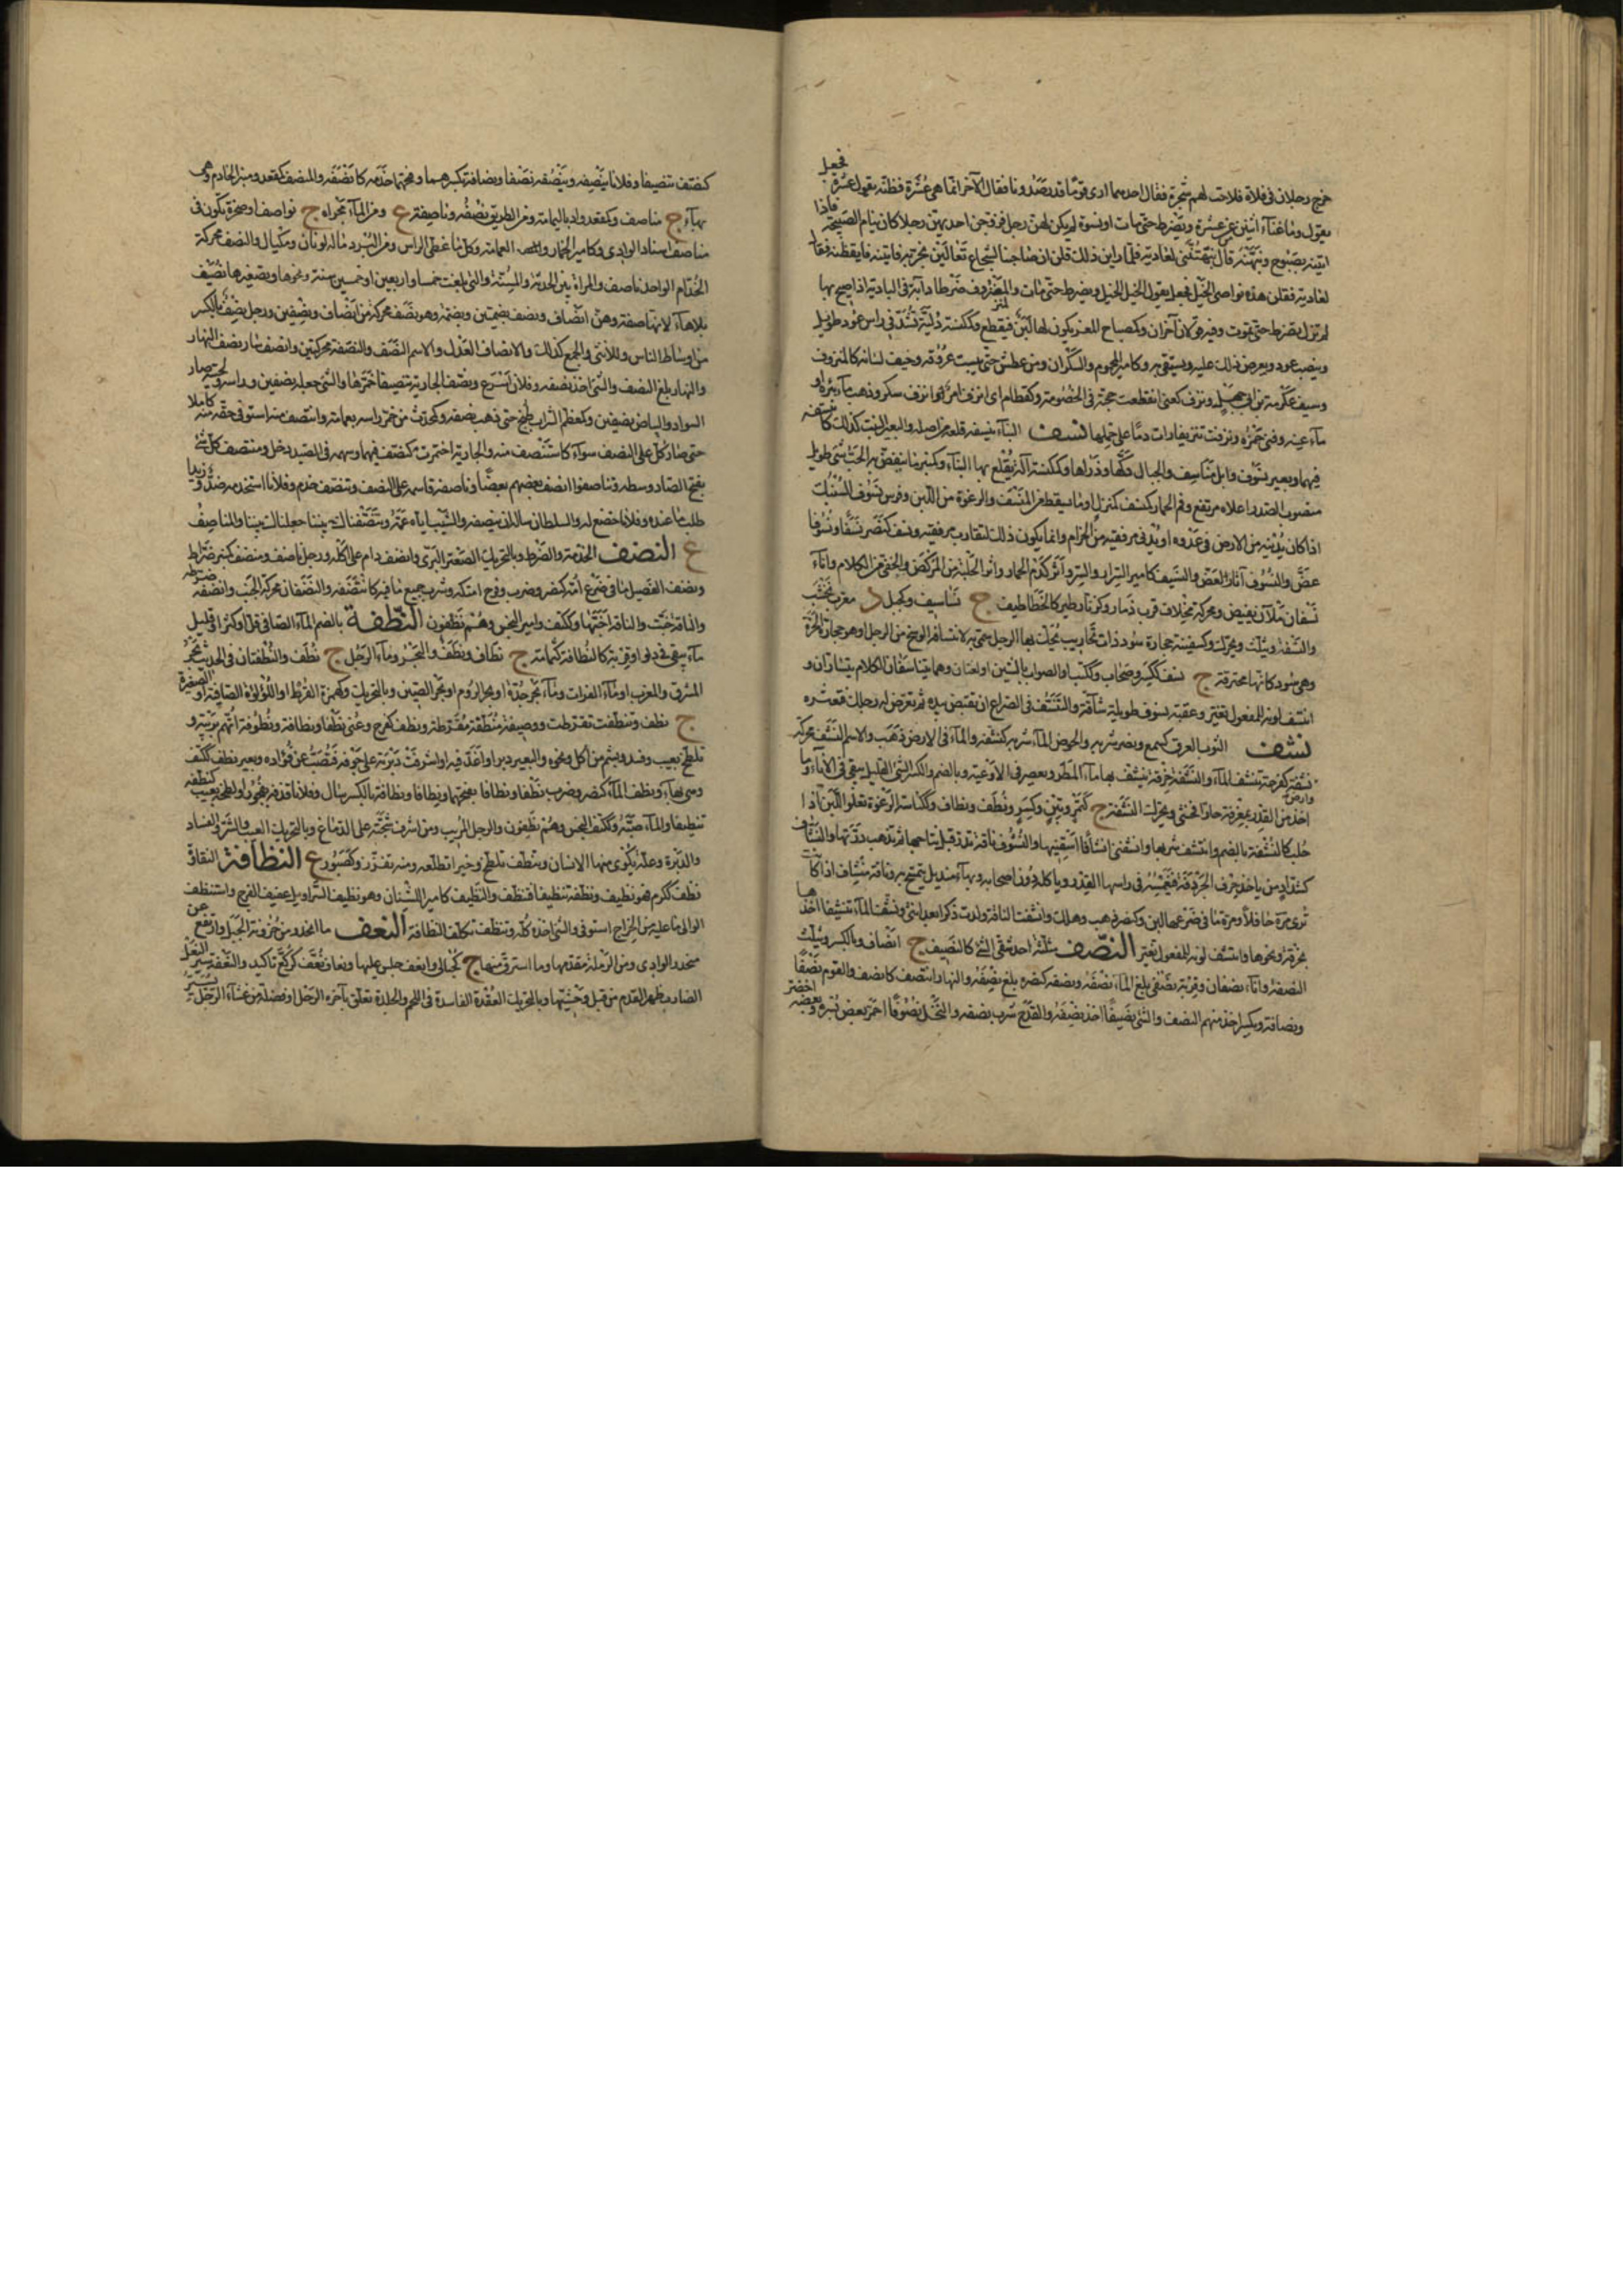 خرج رجلان فى فلاة فلاحت لهم شجرة فقال احدهما ارى قوما قد رصدونا فقال الآخر انما هى عُشَرة فظنه يقول عَشَرة فجعل
يقول وما غناء اثنين عن عشرة ويضرط حتى مات او نسوة لم يكن لهن رجل فزوجن احديهن رجلا كان ينام الصبيحة فاذا
اتينه بصبوح ونبهنه قال لو نبهتننى لعادية فلما راين ذلك قلن ان صاحبنا لشجاع تعالين نجربه فاتينه فايقظنه فقال
لعادية فقلن هذه نواصى الخيل فجعل يقول الخيل الخيل ويضرط حتى مات والمنزوف ضرطا دابة فى البادية اذا صيح بها
لم تزل تضرط حتى تموت وفيه قولان آخران وكمصباح للعنز يكون لها لبن فينقطع وكمكنسة دلية تشد فى راس عود طويل
وينصب عود ويعرض ذلك عليه ويستقى به وكامير المحموم والسكران ومن عطش حتى يبست عروقه وجف لسانه كالمنزوف
وسيف عكرمة بن ابى جهل ونزف كعنى انقطعت حجته فى الخصومة وكقطام اى انزف امر وانزف سكر وذهب ماء بئره او
ماء عينه وفنى خمره ونزفت تنزيفا رات دما على حملها نسف البناء ينسفه قلعه من اصله والبعير النبت كذلك كانتسفه
فيهما وبعير نسوف وابل مناسيف والجبال دكها وذراها وكمكنسة آلة يقلع بها البناء وكمنبر ما ينفض به الحب شئ طويل
منصوب الصدر اعلاه مرتفع وفم الحمار كمنسف كمنزل وما يسقط من المنسف والرغوة من اللبن وفرس نسوف السنبك
اذا كان يدنيه من الارض فى عدوه او يدنى مرفقيه من الحزام وانما يكون ذلك لتقارب مرفقيه ونسف كنصر نسفا ونسوفا
عض والنسوف آثار العض والنسيف كامير السرار والسر واثر كدم الحمار واثر الحلبة من الركض والخفى من الكلام واناء
نسفان ملآن يفيض ومحركة مخلاف قرب ذمار وكزنار طير كالخطاطيف ج نساسيف وكجبل د معرب نخشب
والنسفة ويثلث ويحرك وكسفينة حجارة سود ذات نخاريب يحك بها الرجل سمى به لانتسافه الوسخ من الرجل وهو حجارة الحرة
وهى سود كانها محترقة ج نسف ككسر وصحاب وككتب او الصواب بالشين او لغتان وهما يتناسفان الكلام يتساران و
انتسف لونه للمفعول تغير وعقبة نسوف طويلة شاقة والتنسف فى الصراع ان تقبض بيده ثم تعرض له رجلك فتعثره
نشف الثوب العرق كسمع ونصر شربه والحوض الماء شربه كتنشفه والماء فى الارض ذهب والاسم النشف محركة
وارض نشفة كفرحة تنشف الماء والنشفة خرقة ينشف بها ماء المطر ويعصر فى الاوعية وبالضم والكسر الشئ القليل يبقى فى الاناء وما
اخذ من القدر بمغرفة حارا فحسى ويحرك النشفة ج كتمر وتبن وكسر ونطف ونطاف وككناسة الرغوة تعلو اللبن اذا
حلب كالنشفة بالضم وانتشف شربها وانشفنى انشافا اسقينيها والنشوف ناقة تدر قبل نتاجها ثم تذهب درتها والنشاف
كشداد من ياخذ حرف الجردقة فيغمسه فى راس القدر وياكله دون اصحابه وبهاء منديل يتمسح به وناقة منشاف اذا كانت
ترى مرة حافلا ومرة ما فى ضرعها لبن وكنصر ذهب وهلك وانشفت الناقة ولدت ذكرا بعد انثى ونشف الماء تنشيفا اخذها
بخرقة ونحوها وانتشف لونه للمفعول تغير النصف مثلثة احد شقى الشئ كالنصيف ج انصاف وبالكسر ويثلث
النصفة واناء نصفان وقربة نصفى بلغ الماء نصفه ونصفه كنصره بلغ نصفه والنهار انتصف كانصف والقوم نصفا
ونصافة ويكسر اخذ منهم النصف والشئ نصيفا اخذ نصفه والقدح شرب نصفه والنخل نصوفا احمر بعض بسره وبعضه اخضر
كنصف تنصيفا وفلانا ينصفه وينصفه نصفا ونصافة بكسرهما وفتحهما خدمه كانصفه والمنصف كمقعد ومنبر الخادم وهى
بهاء ج مناصف وكمقعد واد باليمامة ومن الطريق نصفه وناصفة ع ومن الماء مجراه ج نواصف او صخرة تكون فى
مناصف اسناد الوادى وكامير الخمار والعمامة وكل ما غطى الراس ومن البرد ما له لونان ومكيال والنصف محركة
الخدام الواحد ناصف والمراة بين الحدثة والمسنة والتى بلغت خمسا واربعين او خمسين سنة ونحوها وتصغيرها نصيف
بلا هاء لانها صفة وهن انصاف ونصف بضمتين وبضمة وهو نصف محركة من انصاف ونصفين ورجل نصف بالكسر
من اوساط الناس وللانثى والجمع كذلك والانصاف العدل والاسم النصف والنصفة محركتين وانصف سار نصف النهار
والنهار بلغ النصف والشئ اخذ نصفه وفلان اسرع ونصف الجارية تنصيفا خمرها والشئ جعله نصفين وراسه ولحيته صار
السواد والبياض نصفين وكمعظم الشراب طبخ حتى ذهب نصفه وكمحدث من خمر راسه بعمامة وانتصف منه استوفى حقه منه كاملا
حتى صار كل على النصف سواء كاستنصف منه والجارية اختمرت كتنصف فيهما وسهمه فى الصيد دخل ومنتصف كل شئ
بفتح الصاد وسطه وتناصفوا انصف بعضهم بعضا وناصفه قاسمه على النصف وتنصف خدم وفلانا استخدمه ضد وزيدا
طلب ما عنده وفلانا خضع له والسلطان ساله ان ينصفه والشيب اياه عمه وتنصفناك بيننا جعلناك بيننا والمناصف
ع النضف الخدمة والضرط وبالتحريك الصعتر البرى وانضف دام على اكله ورجل ناضف ومنضف كمنبر ضراط
ونضف الفصيل ما فى ضرع امه كنصر وضرب وفرح امتكه وشرب جميع ما فيه كانتضفه والنضفان محركة الخبب وانضفه ضرطه
والناقة خبت والناقة اخبها وككتف وامير النجس وهم نضفون النطفة بالضم الماء الصافى قل او كثر او قليل
ماء يبقى فى دلو او قربة كالنطافة كثمامة ج نطاف ونطف والبحر وماء الرجل ج نطف والنطفتان فى الحديث بحر
المشرق والمغرب او ماء الفرات وماء بحر جدة او بحر الروم او بحر الصين وبالتحريك وكهمزة القرط او اللؤلؤة الصافية او الصغيرة
ج نطف وتنطفت تقرطت ووصيفة منطفة مقرطة ونطف كفرح وعنى نطفا ونطافة ونطوفة اتهم بريبة و
تلطخ بعيب وفسد وبشم من اكل ونحوه والبعير دبر او اغد فيه او اشرفت دبرته على جوفه فنقبت عن فؤاده وبعير نطف ككتف
وهى بهاء ونطف الماء كنصر وضرب نطفا ونطافا بفتحها ونطافا ونطافة بالكسر سال وفلانا قذفه بفجور او لطخه بعيب كنطفه
تنطيفا والماء صبه وككتف النجس وهم نطفون والرجل المريب ومن اشرف شجته على الدماغ وبالتحريك العيب والشر والفساد
والدبرة وعلة يكوى منها الانسان وتنطف تلطخ وخبرا تطلعه ومنه تقزز وكصبور ع النظافة النقاوة
نظف ككرم فهو نظيف ونظفه تنظيفا فتنظف والنظيف كامير الاشنان وهو نظيف السراويل عفيف الفرج واستنظف
الوالى ما عليه من الخراج استوفى والشئ اخذه كله وتنظف تكلف النظافة النعف ما انحدر من حزونة الجبل وارتفع عن
منحدر الوادى ومن الرملة مقدمها وما استرق منها ج كجبال وانعف جلس عليها ونعاف نعف كركع تاكيد والنعفة سير النعل
الضارب ظهر القدم من قبل وحشيها وبالتحريك العقدة الفاسدة فى اللحم والجلدة تعلق بآخرة الرحل او فضلة من غشاء الرحل